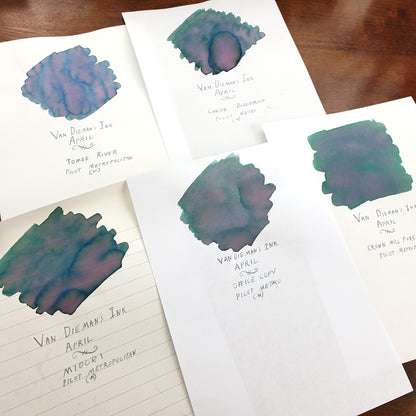 VAN DIEMANS INK
APRIL
TOMOE RIVER
PILOT METROPOLITAN
(M)
VAN DIEMAN'S INK
APRIL
PILOT METRO
VAN DIEMAN'S INK
APRIL
CROWN MILL PURE
PILOT METROPO
VAN DIEMANS INK
APRIL
MIDORI
PILOT METROPOLITAN
(M)
VAN DIEMAN'S INK
APRIL
OFFICE COPY
PILOT METRO
(M)